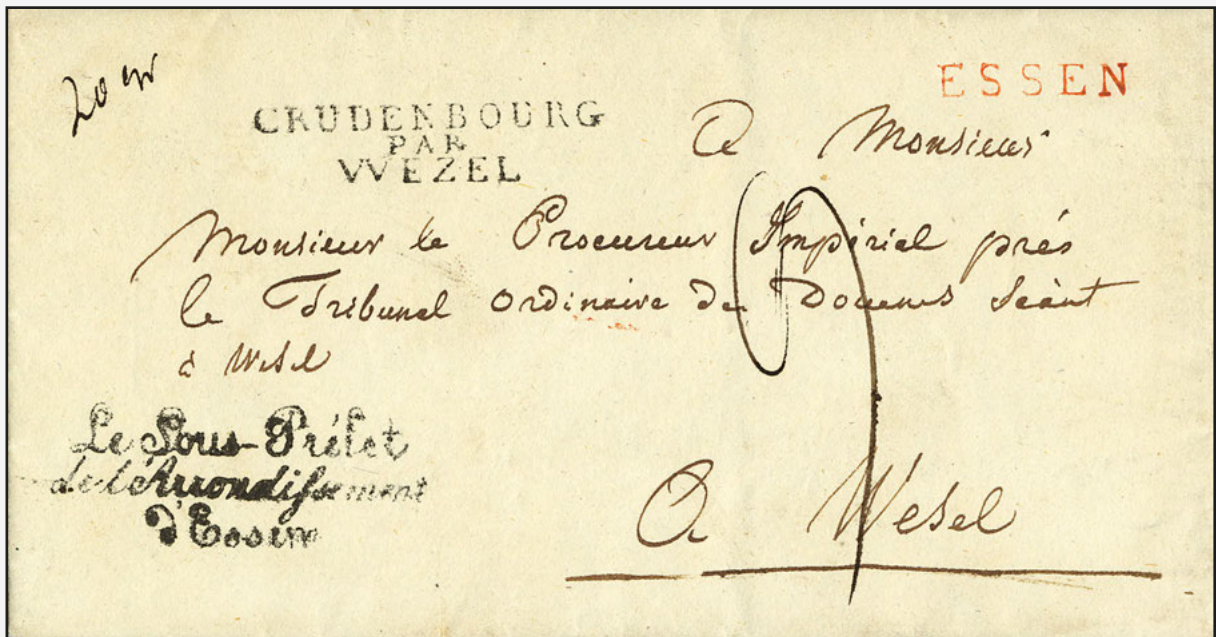 20 gr
ESSEN
CRUDENBOURG
PAR
WEZEL
A Monsieur
Monsieur le Procureur Impérial près
le Tribunal Ordinaire de Douanes Séant
à Wesel
Le Sous-Préfet
de l'Arrondissement
d'Essen
A Wesel